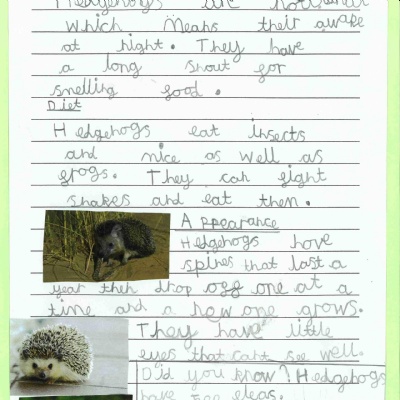 Hedgehogs are noctenall
which means their awake
at night. They have
a long snout for
smelling food.
Diet
Hedgehogs eat insects
and mice as well as
frogs. They can fight
snakes and eat then.
Appearance
Hedgehogs have
spines that last a
year then drop off one at a
time and a now one grows.
They have little
eyes that cant see well.
Did you know? Hedgehogs
have